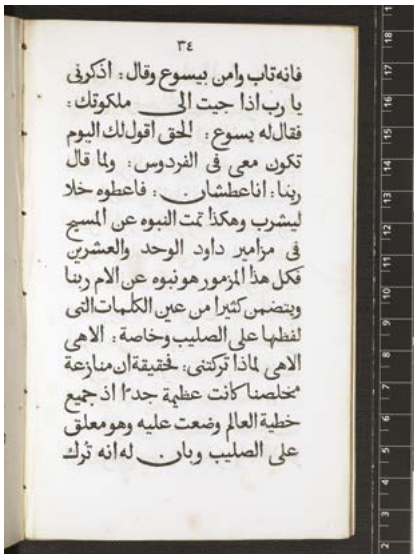 ٣٤
فانه تاب وامن بيسوع وقال: اذكرني
يا رب اذا جيت الى ملكوتك:
فقال له يسوع: الحق اقول لك اليوم
تكون معى فى الفردوس: ولما قال
ربنا: انا عطشان: فاعطوه خلا
ليشرب وهكذا تمت النبوه عن المسيح
فى مزامير داود الوحد والعشرين
فكل هذا المزمور هو نبوه عن الام ربنا
ويتضمن كثيرا من عين الكلمات التى
لفظها على الصليب وخاصة: الاهى
الاهى لماذا تركتنى: فحقيقة ان منازعة
مخلصنا كانت عظيمة جدًا اذ جميع
خطية العالم وضعت عليه وهو معلق
على الصليب وبان له انه تُرك
18
17
16
15
14
13
12
11
10
9
8
7
6
5
4
3
2